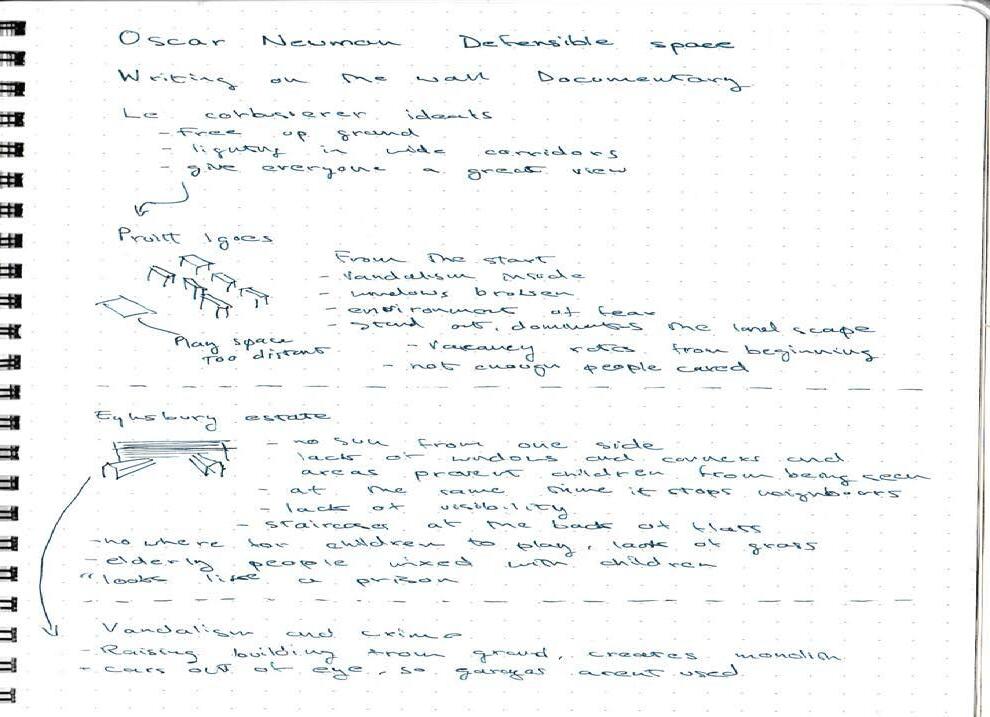 Oscar Neuman Defensible space
Writing on the wall Documentary
Le corbusierer ideals
- Free up ground
- lighting in wide corridors
- give everyone a great view
Pruitt Igoes
From the start
- Vandalism inside
- windows broken
- environment of fear
- stand out, dominates the landscape
Play space
too distant
- vacancy rates from beginning
- not enough people cared
estate
- no sun from one side
lack of windows and corners and
areas prevent children from being seen
- at the same time it stops neighbours
- lack of visibility
- staircases at the back of flats
- no where for children to play, lack of grass
- elderly people mixed with children
"looks like a prison
Vandalism and crime
- Raising building from ground, creates monolith
- cars out of eye, so garages arent used